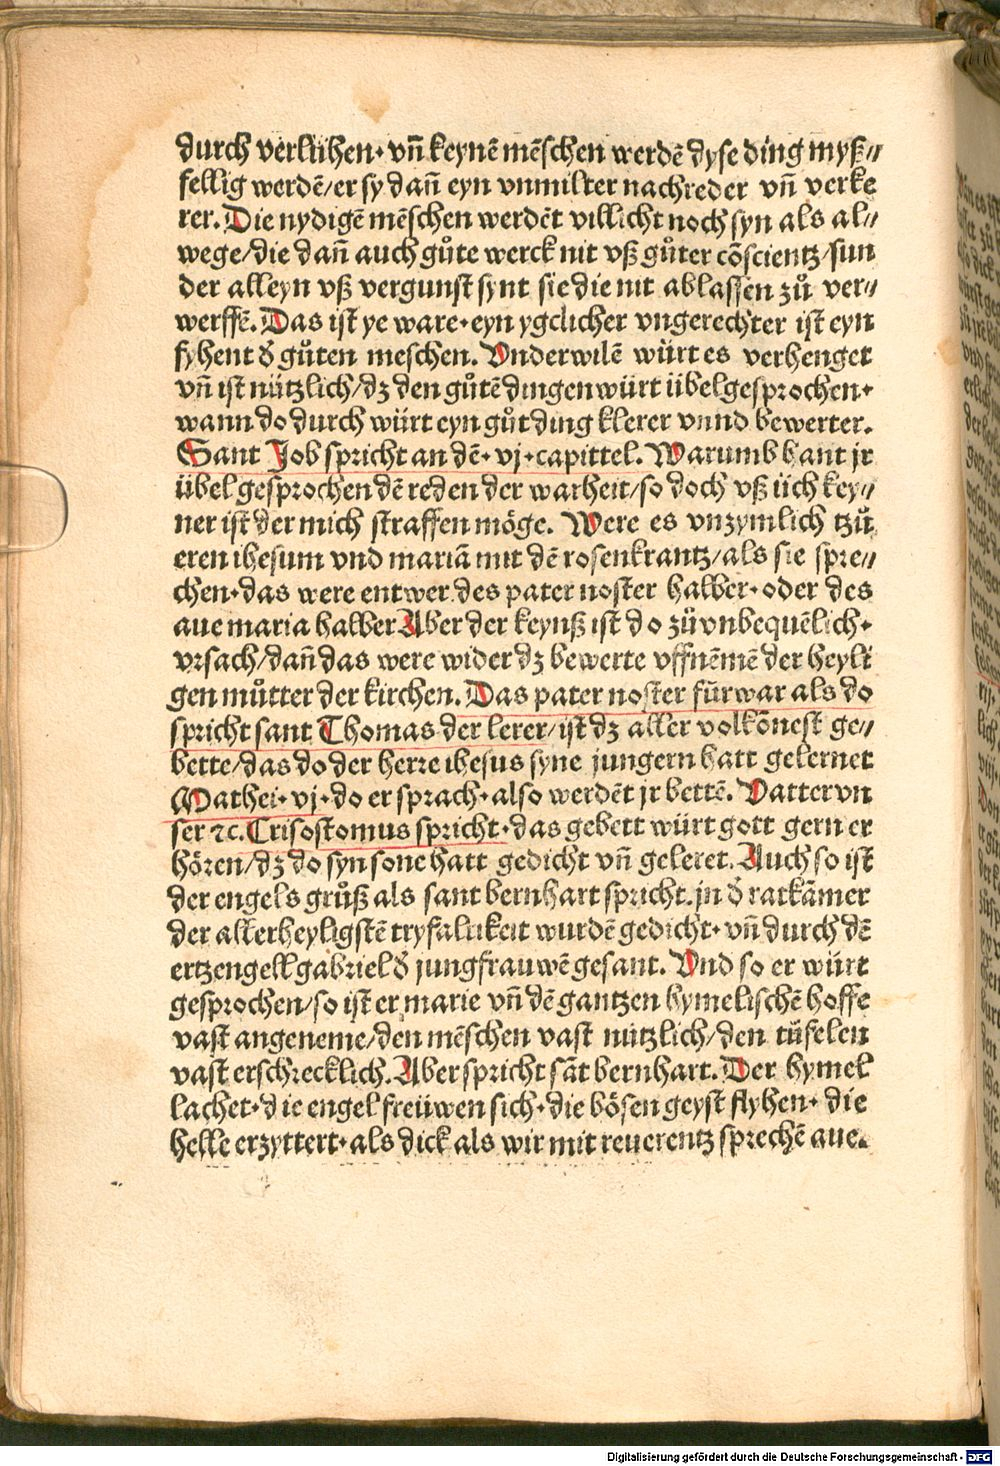 durch verlühen· vn̄ keynē mēschen werdē dyse ding myß⸗
fellig werdē/er sy dan̄ eyn vnmilter nachreder vn̄ verke
rer. Die nydigē mēschen werdēt villicht noch syn als al⸗
wege/die dan̄ auch gůte werck nit vß gůter cōscientz/sun
der alleyn vß vergunst synt sie die nit ablassen zů ver⸗
werffē. Das ist ye ware· eyn ygclicher vngerechter ist eyn
fyhent d̕ gůten meschen. Vnderwilē würt es verhenget
vn̄ ist nützlich/dz den gůtē dingen würt übelgesprochen·
wann do durch würt eyn gůt ding klerer vnnd bewerter.
Sant Job spricht an dē· vj· capittel. Warumb hant jr
übel gesprochen dē reden der warheit/so doch vß üch key⸗
ner ist der mich straffen möge. Were es vnzymlich tzů
eren ihesum vnd mariā mit dē rosenkrantz/als sie spre⸗
chen· das were entwer des pater noster halber· oder des
aue maria halber Aber der keynß ist do zů vnbequēlich·
vrsach/dan̄ das were wider dz bewerte vffnēmē der heyli
gen můtter der kirchen. Das pater noster fürwar als do
spricht sant Thomas der lerer/ist dz aller volkōnest ge⸗
bette/das do der herre ihesus syne jungern hatt gelernet
Mathei· vj· do er sprach· also werdēt jr bettē. Vatter vn
ser ⁊c. Crisostomus spricht· das gebett würt gott gern er
hören/dz do syn sone hatt gedicht vn̄ geleret. Auch so ist
der engels grůß als sant bernhart spricht. jn d̕ ratkāmer
der allerheyligstē tryfaltikeit wurdē gedicht· vn̄ durch dē
ertzengell gabriel d̕ jungfrauwē gesant. Vnd so er würt
gesprochen/so ist er marie vn̄ dē gantzen hymelischē hoffe
vast angeneme/den mēschen vast nützlich/den tüfelen
vast erschrecklich. Aber spricht sāt bernhart. Der hymel
lachet· die engel freüwen sich· die bösen geyst flyhen· die
helle erzyttert· als dick als wir mit reuerentz sprechē aue.
Digitalisierung gefördert durch die Deutsche Forschungsgemeinschaft - DFG